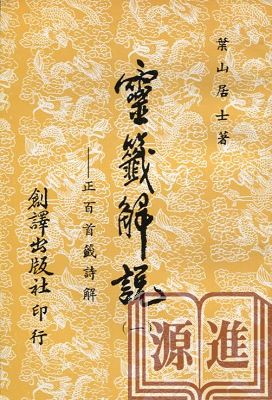 葉山居士著
靈籤解說
(一)
——正百首籤詩解
創譯出版社印行
進源